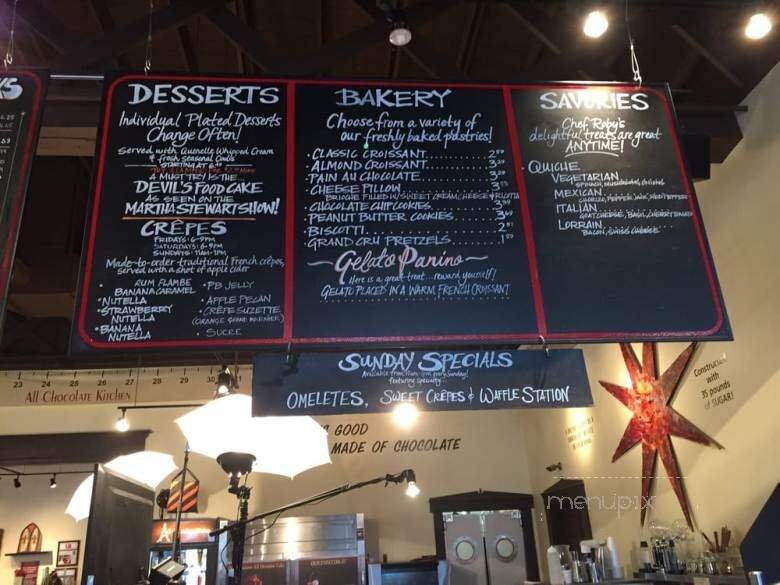 DESSERTS
Individual Plated Desserts
Change Often!
Served with Quenelle Whipped Cream
& fresh seasonal
STARTING AT
A MUST TRY IS THE
DEVIL'S FOOD CAKE
AS SEEN ON THE
MARTHA STEWART SHOW!
CRÊPES
FRIDAYS: 6-9PM
SATURDAYS: 6-9PM
SUNDAYS: 11AM-1PM
Made-to-order traditional French crêpes,
served with a shot of apple cider
RUM FLAMBE
BANANA CARAMEL
• NUTELLA
• STRAWBERRY
NUTELLA
• BANANA
NUTELLA
• PB JELLY
• APPLE PECAN
• CRÊPE SUZETTE
(ORANGE GRAND MARNIER)
• SUCRE
BAKERY
Choose from a variety of
our freshly baked pastries!
• CLASSIC CROISSANT
• ALMOND CROISSANT
• PAIN AU CHOCOLATE
• CHEESE PILLOW
BRIOCHE FILLED W/ SWEET CREAM CHEESE & RICOTTA
• CHOCOLATE CHIP COOKIES
• PEANUT BUTTER COOKIES
• BISCOTTI
• GRAND CRU PRETZELS
Gelato Panino
Here is a great treat... reward yourself!
GELATO PLACED IN A WARM, FRENCH CROISSANT
SAVORIES
Chef Roby's
delightful treats are great
ANYTIME!
• QUICHE
VEGETARIAN
SPINACH, MUSHROOMS,
MEXICAN
CHORIZO, PEPPER JACK, RED PEPPER
ITALIAN
GOAT CHEESE, BASIL, CHERRY TOMATO
LORRAIN
BACON, SWISS CHEESE
SUNDAY SPECIALS
featuring specialty...
OMELETES, SWEET CRÊPES & WAFFLE STATION
23 24 27 28 29 30 31
All Chocolate Kitchen
GOOD
MADE OF CHOCOLATE
Constructed
with
35 pounds
of SUGAR!
menupix